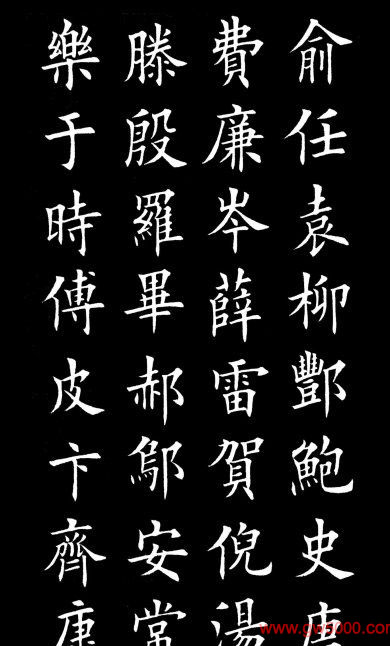 俞任袁柳酆鮑史唐
費廉岑薛雷賀倪湯
滕殷羅畢郝鄔安常
樂于時傅皮卞齊康
www.gw5000.com